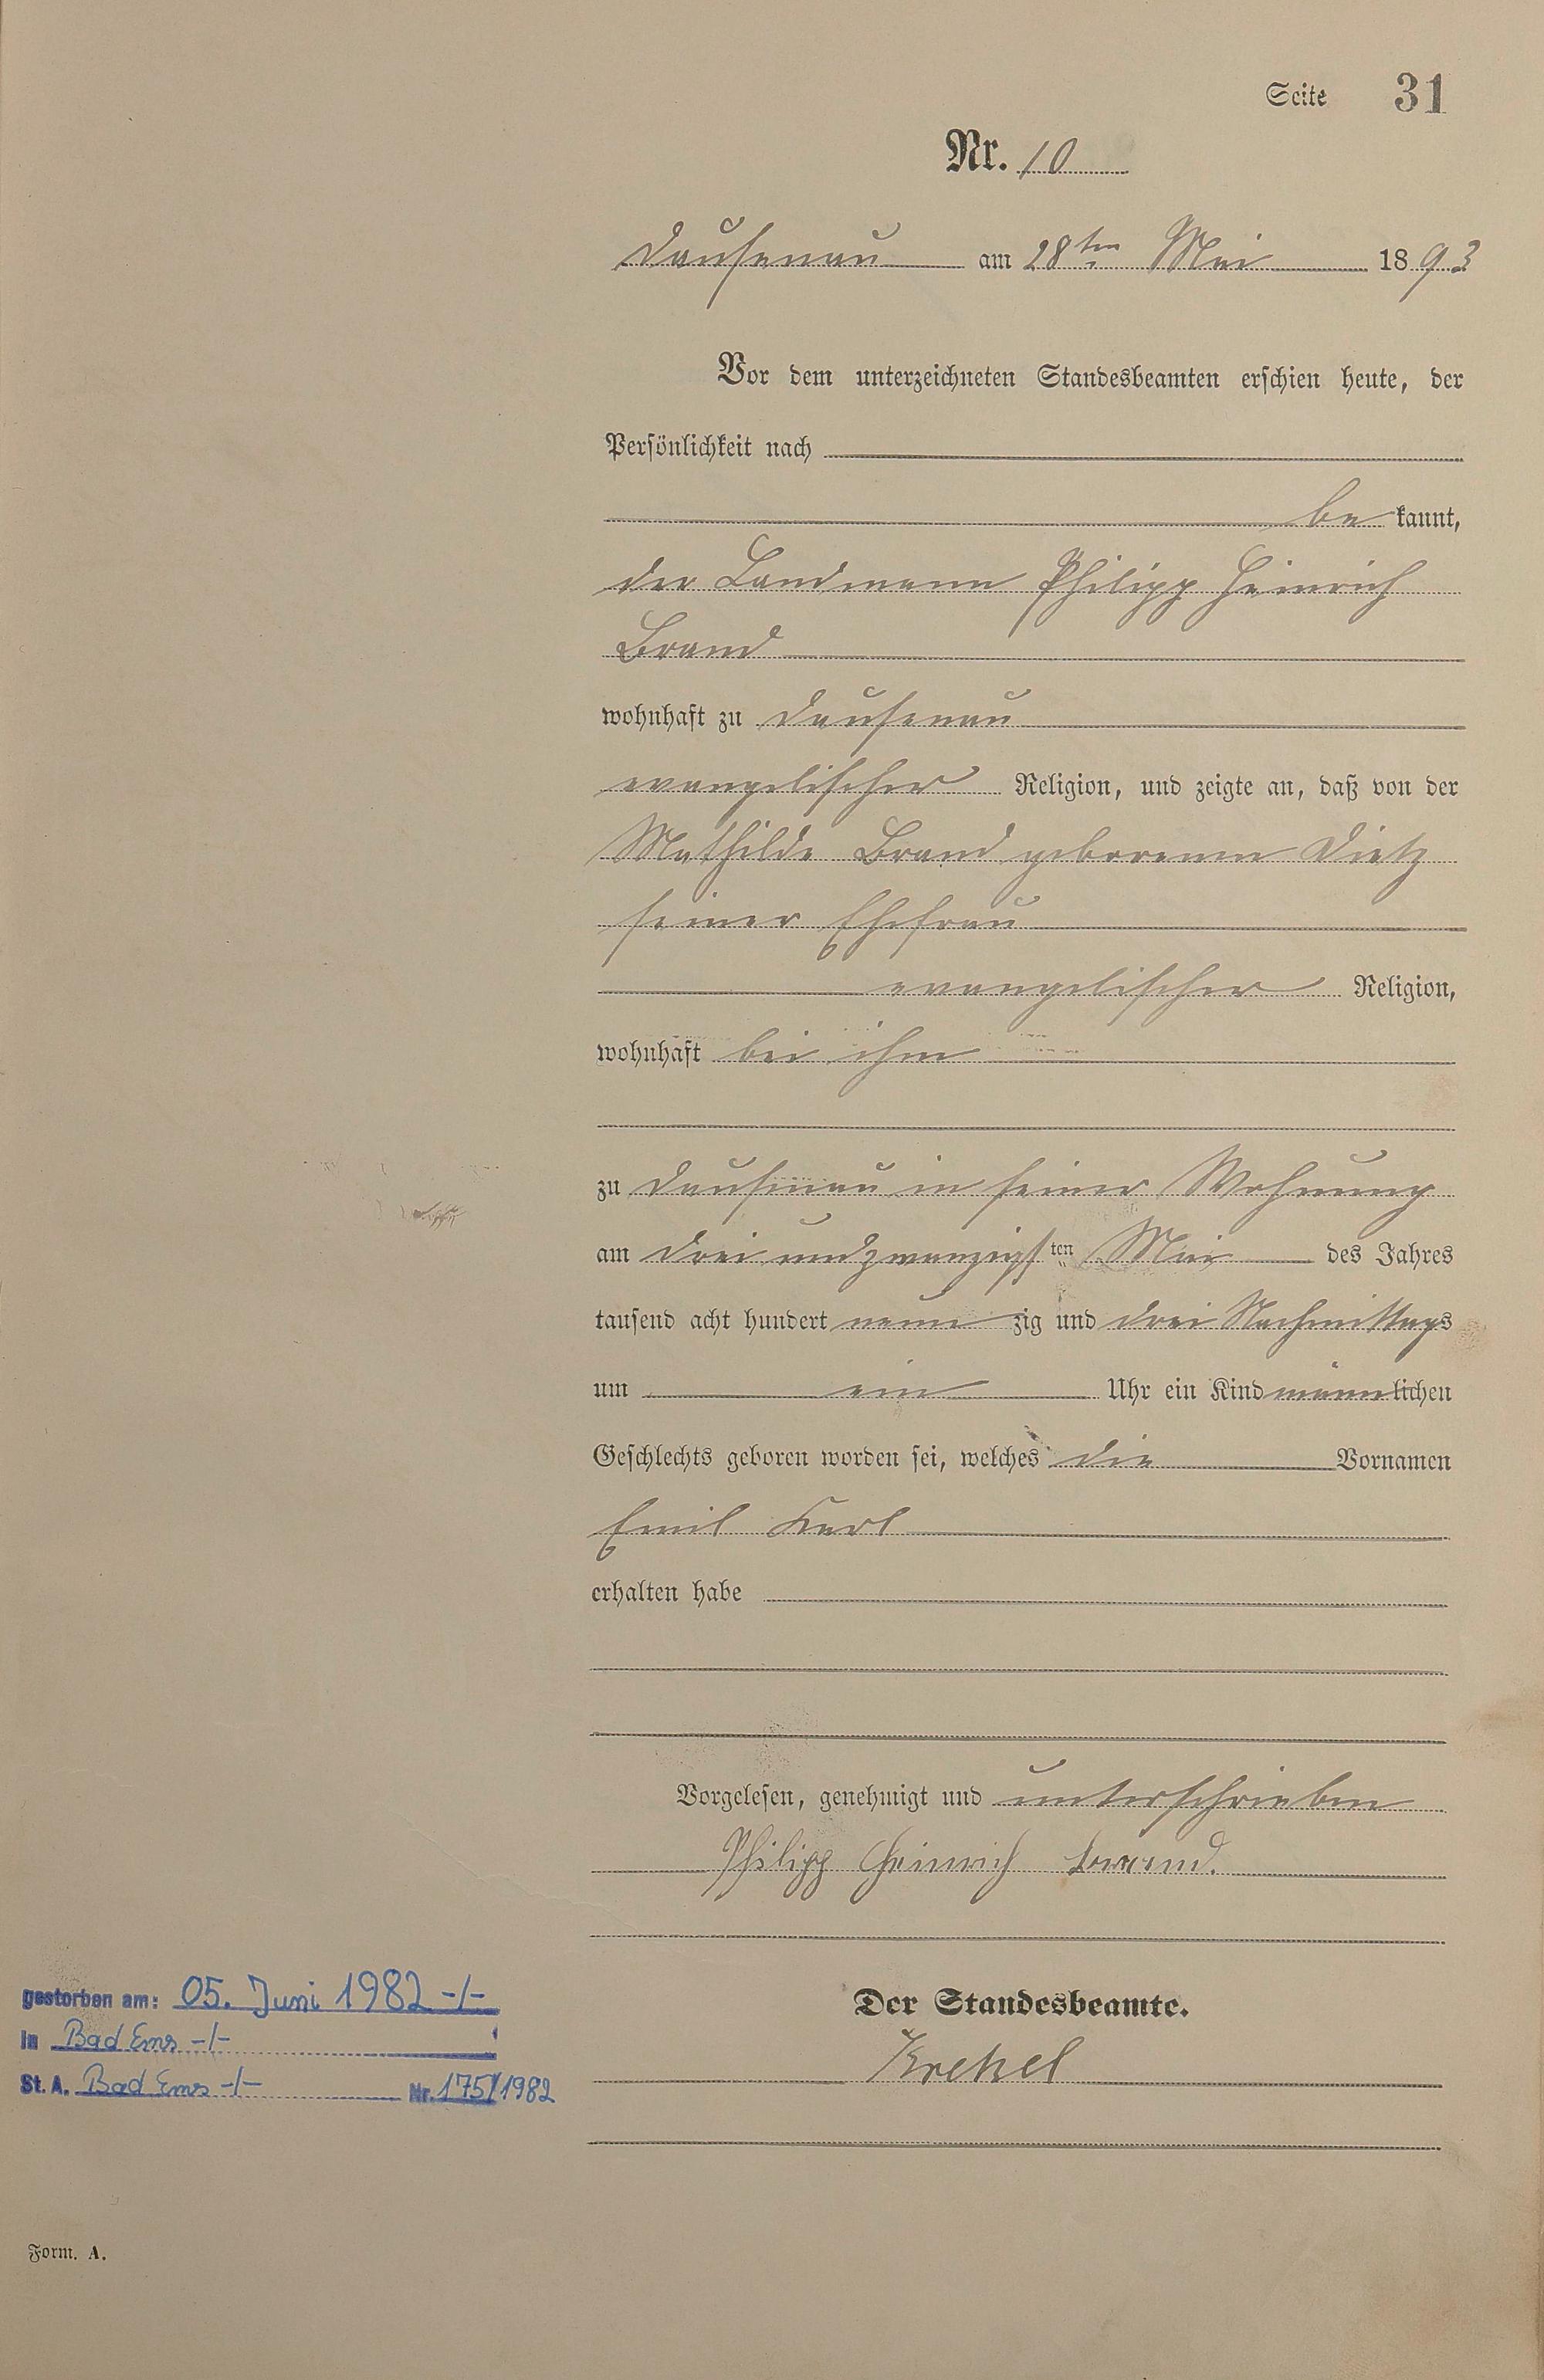 Seite 31
Nr. 10
Dausenau am 28ten Mai 1893
Vor dem unterzeichneten Standesbeamten erschien heute, der
Persönlichkeit nach
be kannt,
der Landmann Philipp Heinrich
Brand
wohnhaft zu Dausenau
evangelischer Religion, und zeigte an, daß von der
Mathilde Brand geborenen Dietz
seiner Ehefrau
evangelischer Religion,
wohnhaft bei ihm
zu Dausenau in seiner Wohnung
am drei und zwanzigsten Mai des Jahres
tausend acht hundert neun zig und drei Nachmittags
um ein Uhr ein Kind männlichen
Geschlechts geboren worden sei, welches die Vornamen
Emil Karl
erhalten habe
Vorgelesen, genehmigt und unterschrieben
Philipp Heinrich Brand.
Der Standesbeamte.
Krekel
gestorben am: 05. Juni 1982 -/-
in Bad Ems -/-
St. A. Bad Ems -/- Nr. 175/1982
Form. A.